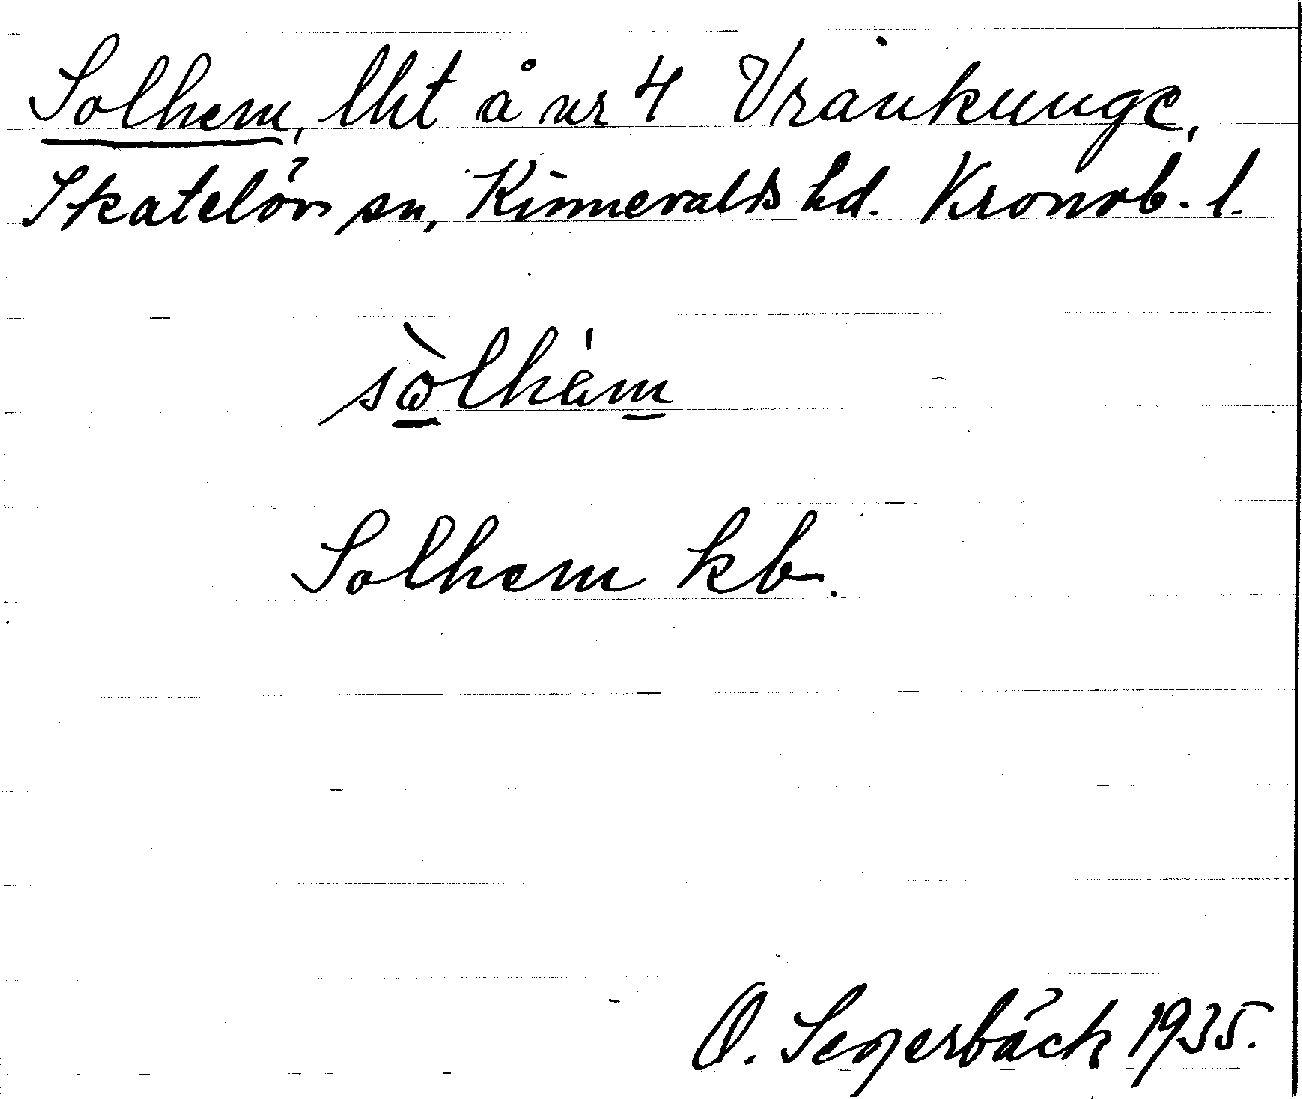 Solhem, lht å nr 4 Vrankunge,
Skatelöv sn, Kinnevalds hd. Kronob. l.
sòlhèm
Solhem kb.
O. Segerbäck 1935.